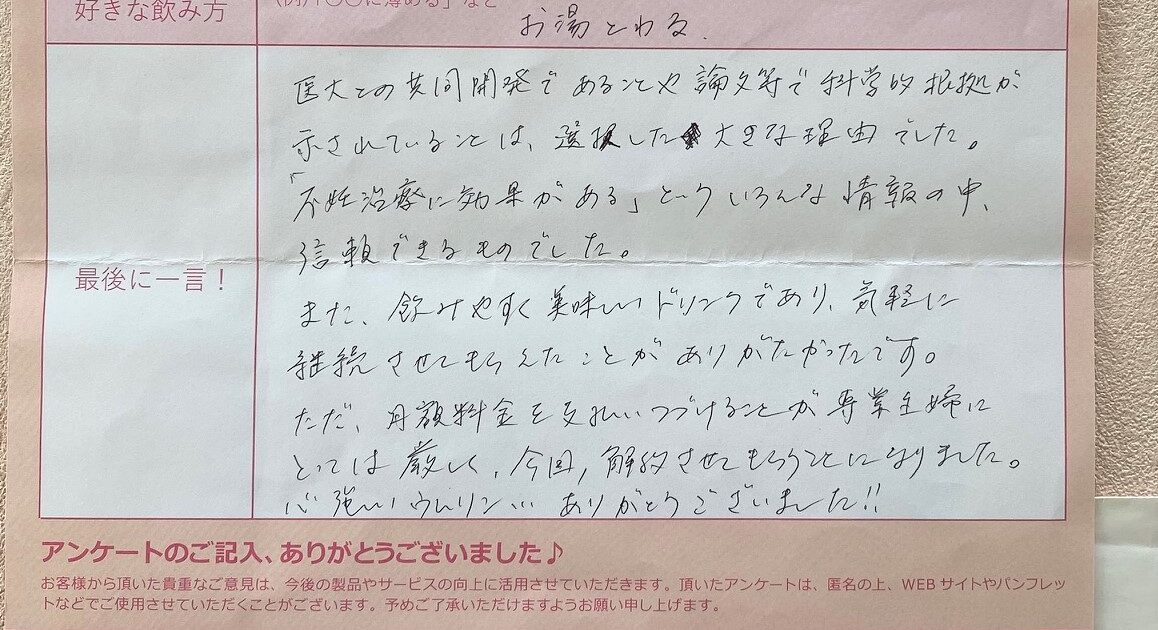 好きな飲み方
お湯とわる.
医大との共同開発であることや論文等で科学的根拠が
示されていることは、選択した大きな理由でした。
「不妊治療に効果がある」といういろんな情報の中、
信頼できるものでした。
最後に一言！
また、飲みやすく美味しいドリンクであり、気軽に
継続させてもらえたことがありがたかったです。
ただ、月額料金を支払いつづけることが専業主婦に
とっては厳しく、今回、解約させてもらうことになりました。
心強い ありがとうございました!!
アンケートのご記入、ありがとうございました♪
お客様から頂いた貴重なご意見は、今後の製品やサービスの向上に活用させていただきます。頂いたアンケートは、匿名の上、WEBサイトやパンフレッ
トなどでご使用させていただくことがございます。予めご了承いただけますようお願い申し上げます。